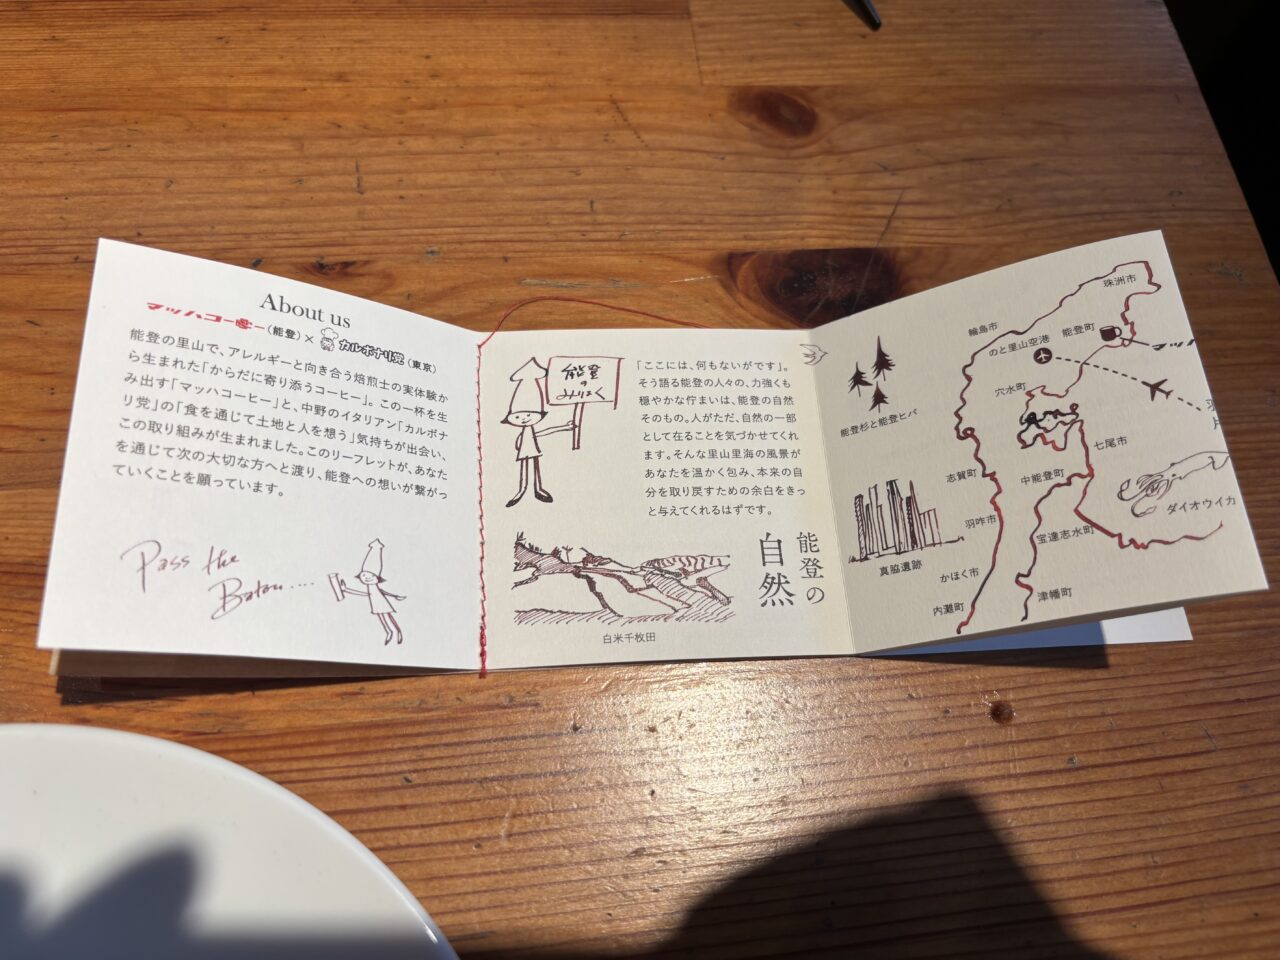 About us
マッハコーヒー(能登)×カルボナリ党(東京)
能登の里山で、アレルギーと向き合う焙煎士の実体験か
ら生まれた「からだに寄り添うコーヒー」。この一杯を生
み出す「マッハコーヒー」と、中野のイタリアン「カルボナ
リ党」の「食を通じて土地と人を想う」気持ちが出会い、
この取り組みが生まれました。このリーフレットが、あなた
を通じて次の大切な方へと渡り、能登への想いが繋がっ
ていくことを願っています。
Pass the
Baton....
能登
の
みりょく
「ここには、何もないがです」。
そう語る能登の人々の、力強くも
穏やかな佇まいは、能登の自然
そのもの。人がただ、自然の一部
として在ることを気づかせてくれ
ます。そんな里山里海の風景が
あなたを温かく包み、本来の自
分を取り戻すための余白をきっ
と与えてくれるはずです。
能登の
自然
白米千枚田
珠洲市
輪島市
能登町
のと里山空港
穴水町
能登杉と能登ヒバ
七尾市
志賀町
中能登町
ダイオウイカ
羽咋市
宝達志水町
真脇遺跡
かほく市
津幡町
内灘町